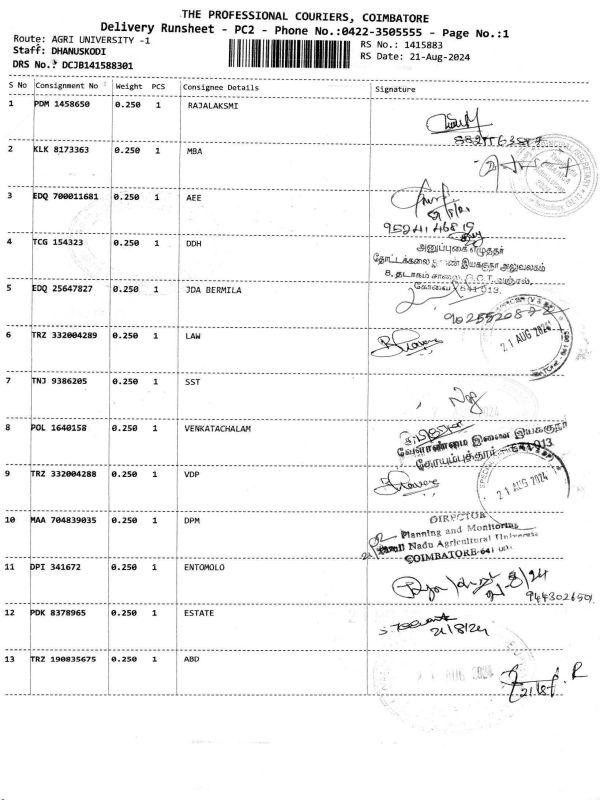 THE PROFESSIONAL COURIERS, COIMBATORE
Delivery Runsheet - PC2 - Phone No.:0422-3505555 - Page No.:1
Route: AGRI UNIVERSITY -1
RS No.: 1415883
Staff: DHANUSKODI
RS Date: 21-Aug-2024
DRS No.: DCJB141588301
S No Consignment No Weight PCS Consignee Details Signature
1 PDM 1458650 0.250 1 RAJALAKSMI
2 KLK 8173363 0.250 1 MBA
3 EDQ 700011681 0.250 1 AEE
4 TCG 154323 0.250 1 DDH
அனுப்புகை எழுத்தர்
தோட்டக்கலை துணை இயக்குநர் அலுவலகம்
8, தடாகம் சாலை, G.C.T. அஞ்சல்,
கோவை 641 013.
5 EDQ 25647827 0.250 1 JDA BERMILA
21 AUG 2024
6 TRZ 332004289 0.250 1 LAW
7 TNJ 9386205 0.250 1 SST
8 POL 1640158 1 VENKATACHALAM
வேளாண்மை இணை இயக்குநர்
கோயம்புத்தூர் 641 013
9 TRZ 332004288 0.250 1 VDP
21 AUG 2024
10 MAA 704839035 0.250 1 DPM
DIRECTOR
Planning and Monitoring
Tamil Nadu Agricultural University
COIMBATORE-641
11 DPI 341672 0.250 1 ENTOMOLO
9443026501
12 PDK 8378965 0.250 1 ESTATE
21/8/24
13 TRZ 190835675 0.250 1 ABD
AUG 2024